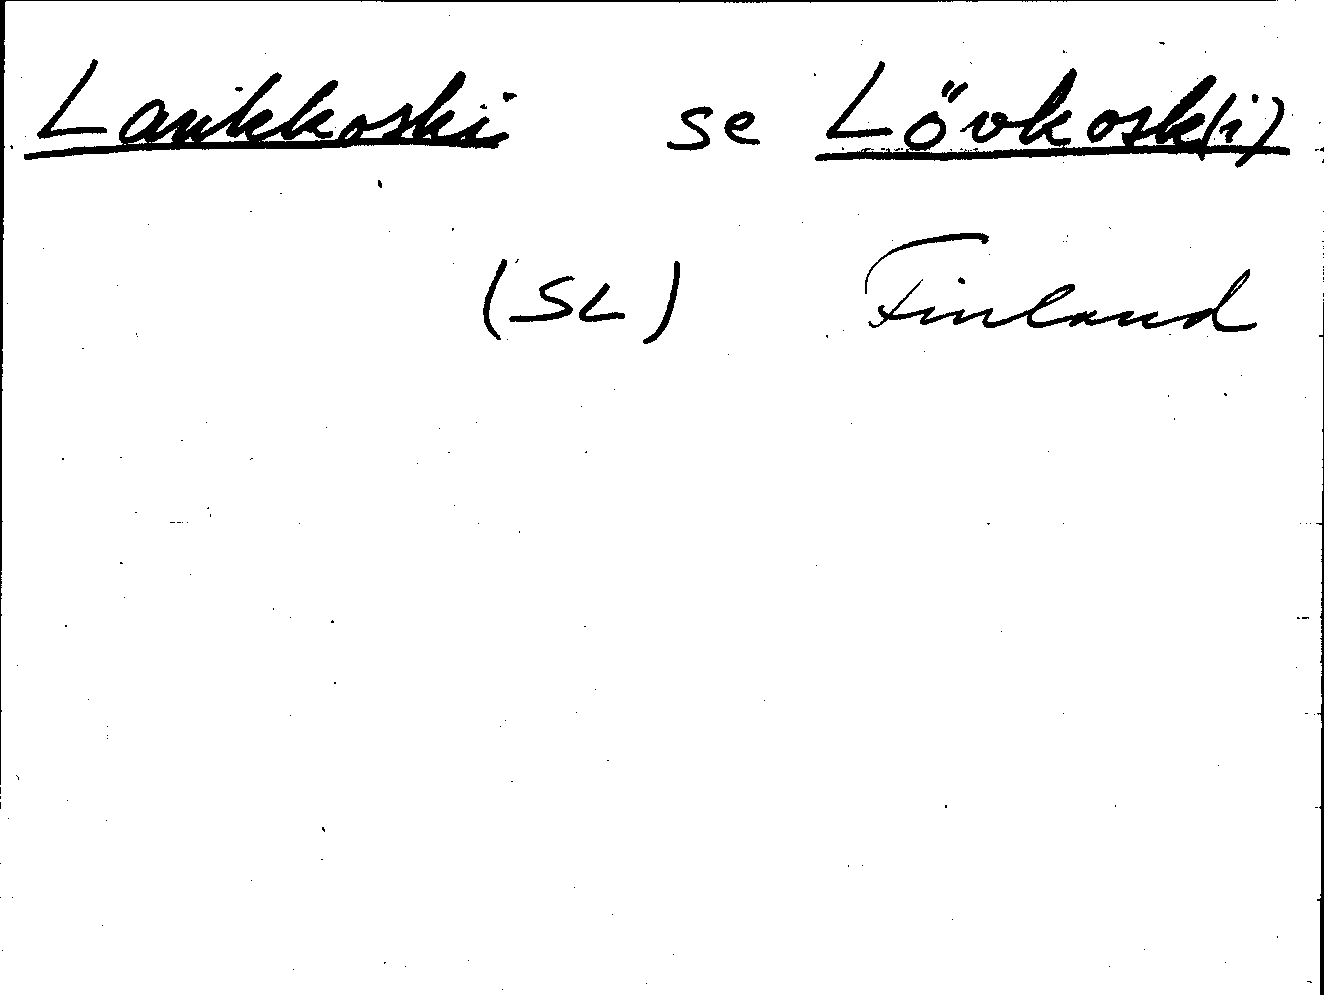 Laukkoski se Lövkosk(i)
(SL) Finland